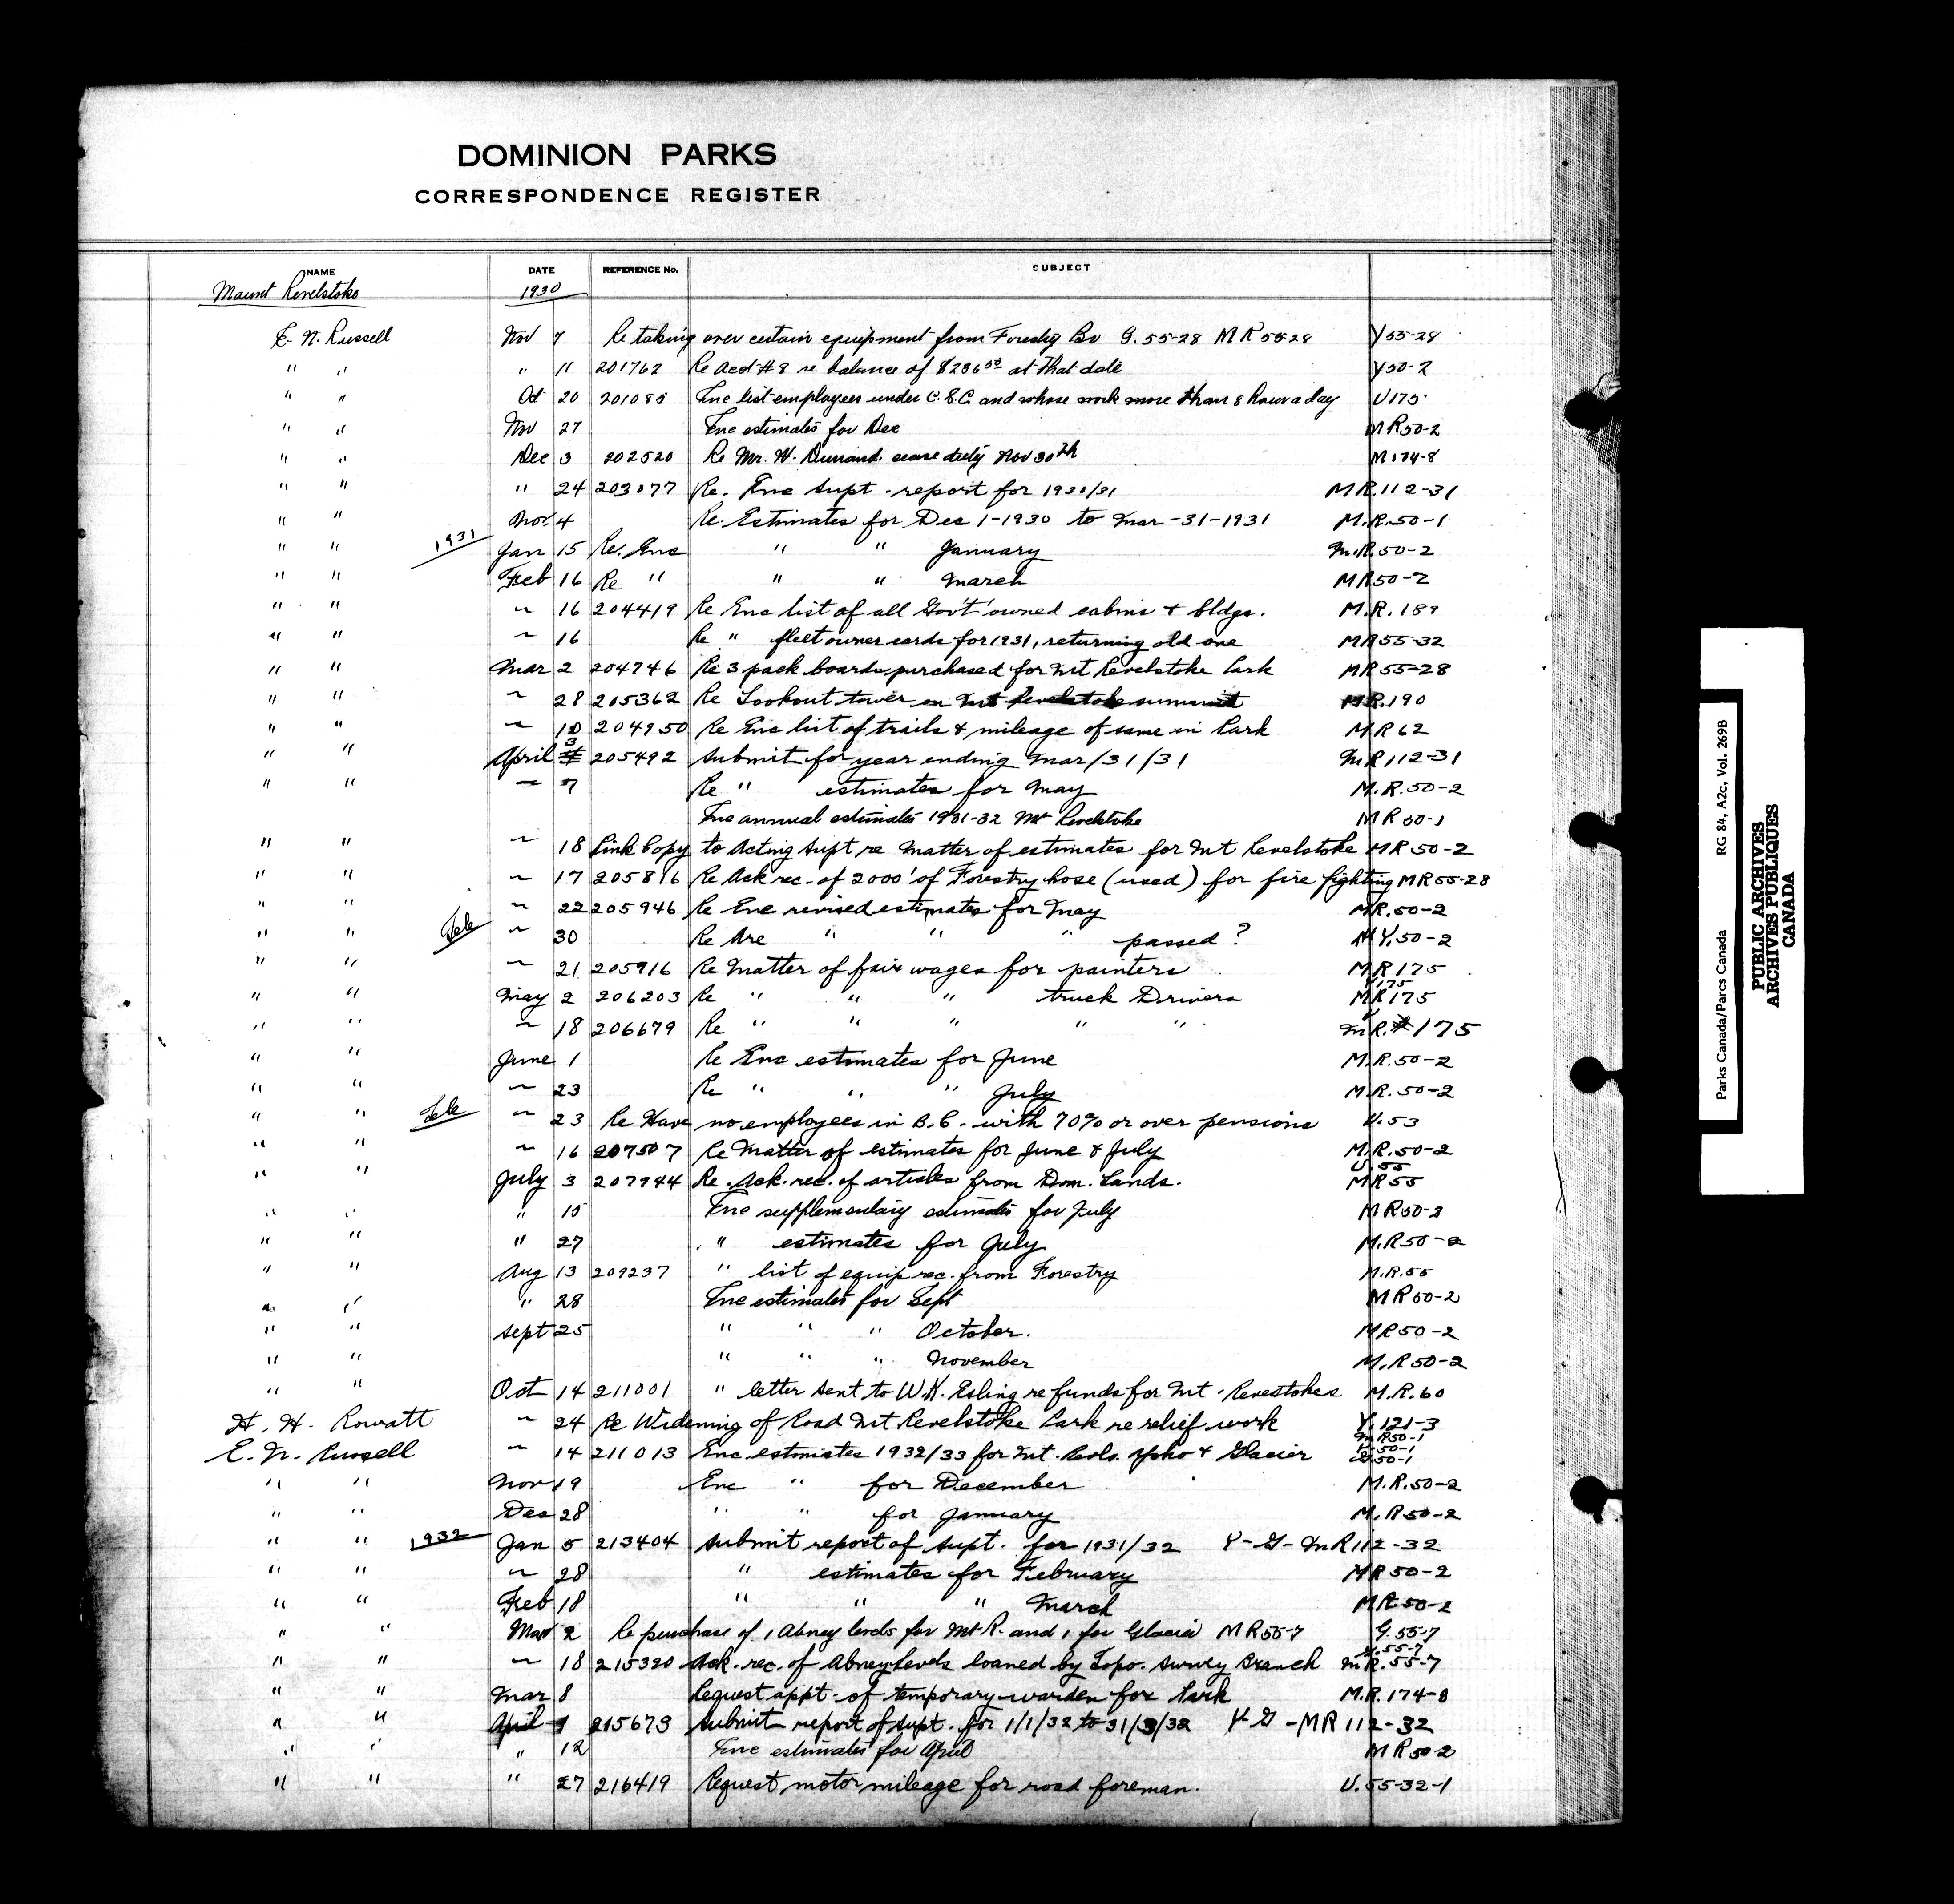 DOMINION PARKS
CORRESPONDENCE REGISTER
NAME DATE REFERENCE No. SUBJECT
Mount Revelstoke 1930
E. N. Russell Nov 7 Re taking over certain equipment from Forestry Br G. 55-28 MR 55-28 Y55-28
" " " 11 201762 Re Acct #8 re balance of $286.50 at that date Y50-2
" " Oct 20 201085 Enc list employees under C.S.C. and whose work more than 8 hours a day U175
" " Nov 27 Enc estimates for Dec MR50-2
" " Dec 3 202520 Re Mr. H. Durrand cease duty Nov 30th M174-8
" " " 24 203077 Re. Enc Supt. report for 1930/31 MR.112-31
" " Nov. 4 Re. Estimates for Dec 1-1930 to Mar-31-1931 M.R.50-1
1931
" " Jan 15 Re. Enc " " January M.R.50-2
" " Feb 16 Re " " " March MR50-2
" " " 16 204419 Re Enc list of all Gov't owned cabins + bldgs. M.R. 189
" " " 16 Re " fleet owner cards for 1931, returning old one MR55-32
" " Mar 2 204746 Re 3 pack boards purchased for Mt Revelstoke Park MR55-28
" " " 28 205362 Re Lookout tower on Mt Revelstoke summit MR.190
" " " 10 204950 Re Enc list of trails & mileage of same in Park MR62
" " April 3 205492 Submit for year ending Mar/31/31 MR112-31
" " " 7 Re " estimates for May M.R.50-2
Enc annual estimates 1931-32 Mt Revelstoke MR50-1
" " " 18 Pink Copy to Acting Supt re matter of estimates for Mt Revelstoke MR50-2
" " " 17 205816 Re Ack rec. of 2000' of Forestry hose (used) for fire fighting MR55-28
" " " 22 205946 Re Enc revised estimates for May MR.50-2
" " Tele " 30 Re Are " " " passed? MY.50-2
" " " 21 205916 Re Matter of fair wages for painters MR175
" " May 2 206203 Re " " " truck Drivers Y175 MR175
" " " 18 206679 Re " " " " " M.R.175
" " June 1 Re Enc estimates for June M.R.50-2
" " " 23 Re " " " July M.R.50-2
" " Tele " 23 Re Have no employees in B.C. with 70% or over pensions U.53
" " " 16 207507 Re Matter of estimates for June & July M.R.50-2
" " July 3 207944 Re. Ack. rec. of articles from Dom. Lands. U.55 MR55
" " " 15 Enc supplementary estimates for July MR50-2
" " " 27 " estimates for July M.R50-2
" " Aug 13 209237 " list of equip rec. from Forestry M.R.55
" " " 28 Enc estimates for Sept MR50-2
" " Sept 25 " " " October. MR50-2
" " " " " November M.R50-2
" " Oct 14 211001 " letter sent to W.K. Esling re funds for Mt. Revestokes M.R.60
H. H. Rowatt " 24 Re Widening of Road Mt Revelstoke Park re relief work Y.121-3
E. N. Russell " 14 211013 Enc estimates 1932/33 for Mt. Revls. Yoho + Glacier MR50-1 Y-50-1 G.50-1
" " Nov 19 Enc " for December M.R.50-2
" " Dec 28 " " for January M.R50-2
1932
" " Jan 5 213404 Submit report of Supt. for 1931/32 Y-G-MR112-32
" " " 28 " estimates for February MR50-2
" " Feb 18 " " " March MR50-2
" " Mar 2 Re purchase of 1 Abney levels for Mt. R. and 1 for Glacier MR55-7 G.55-7
" " " 18 215320 Ack. rec. of Abney Levels loaned by Topo. Survey Branch G.55-7 MR.55-7
" " Mar 8 Request appt. of temporary warden for Park M.R.174-8
" " April 1 215673 Submit report of Supt. for 1/1/32 to 31/3/32 Y-G-MR112-32
" " " 12 Enc estimates for April MR50-2
" " " 27 216419 Request motor mileage for road foreman. U.55-32-1
Parks Canada/Parcs Canada RG 84, A2c, Vol. 269B
PUBLIC ARCHIVES
ARCHIVES PUBLIQUES
CANADA